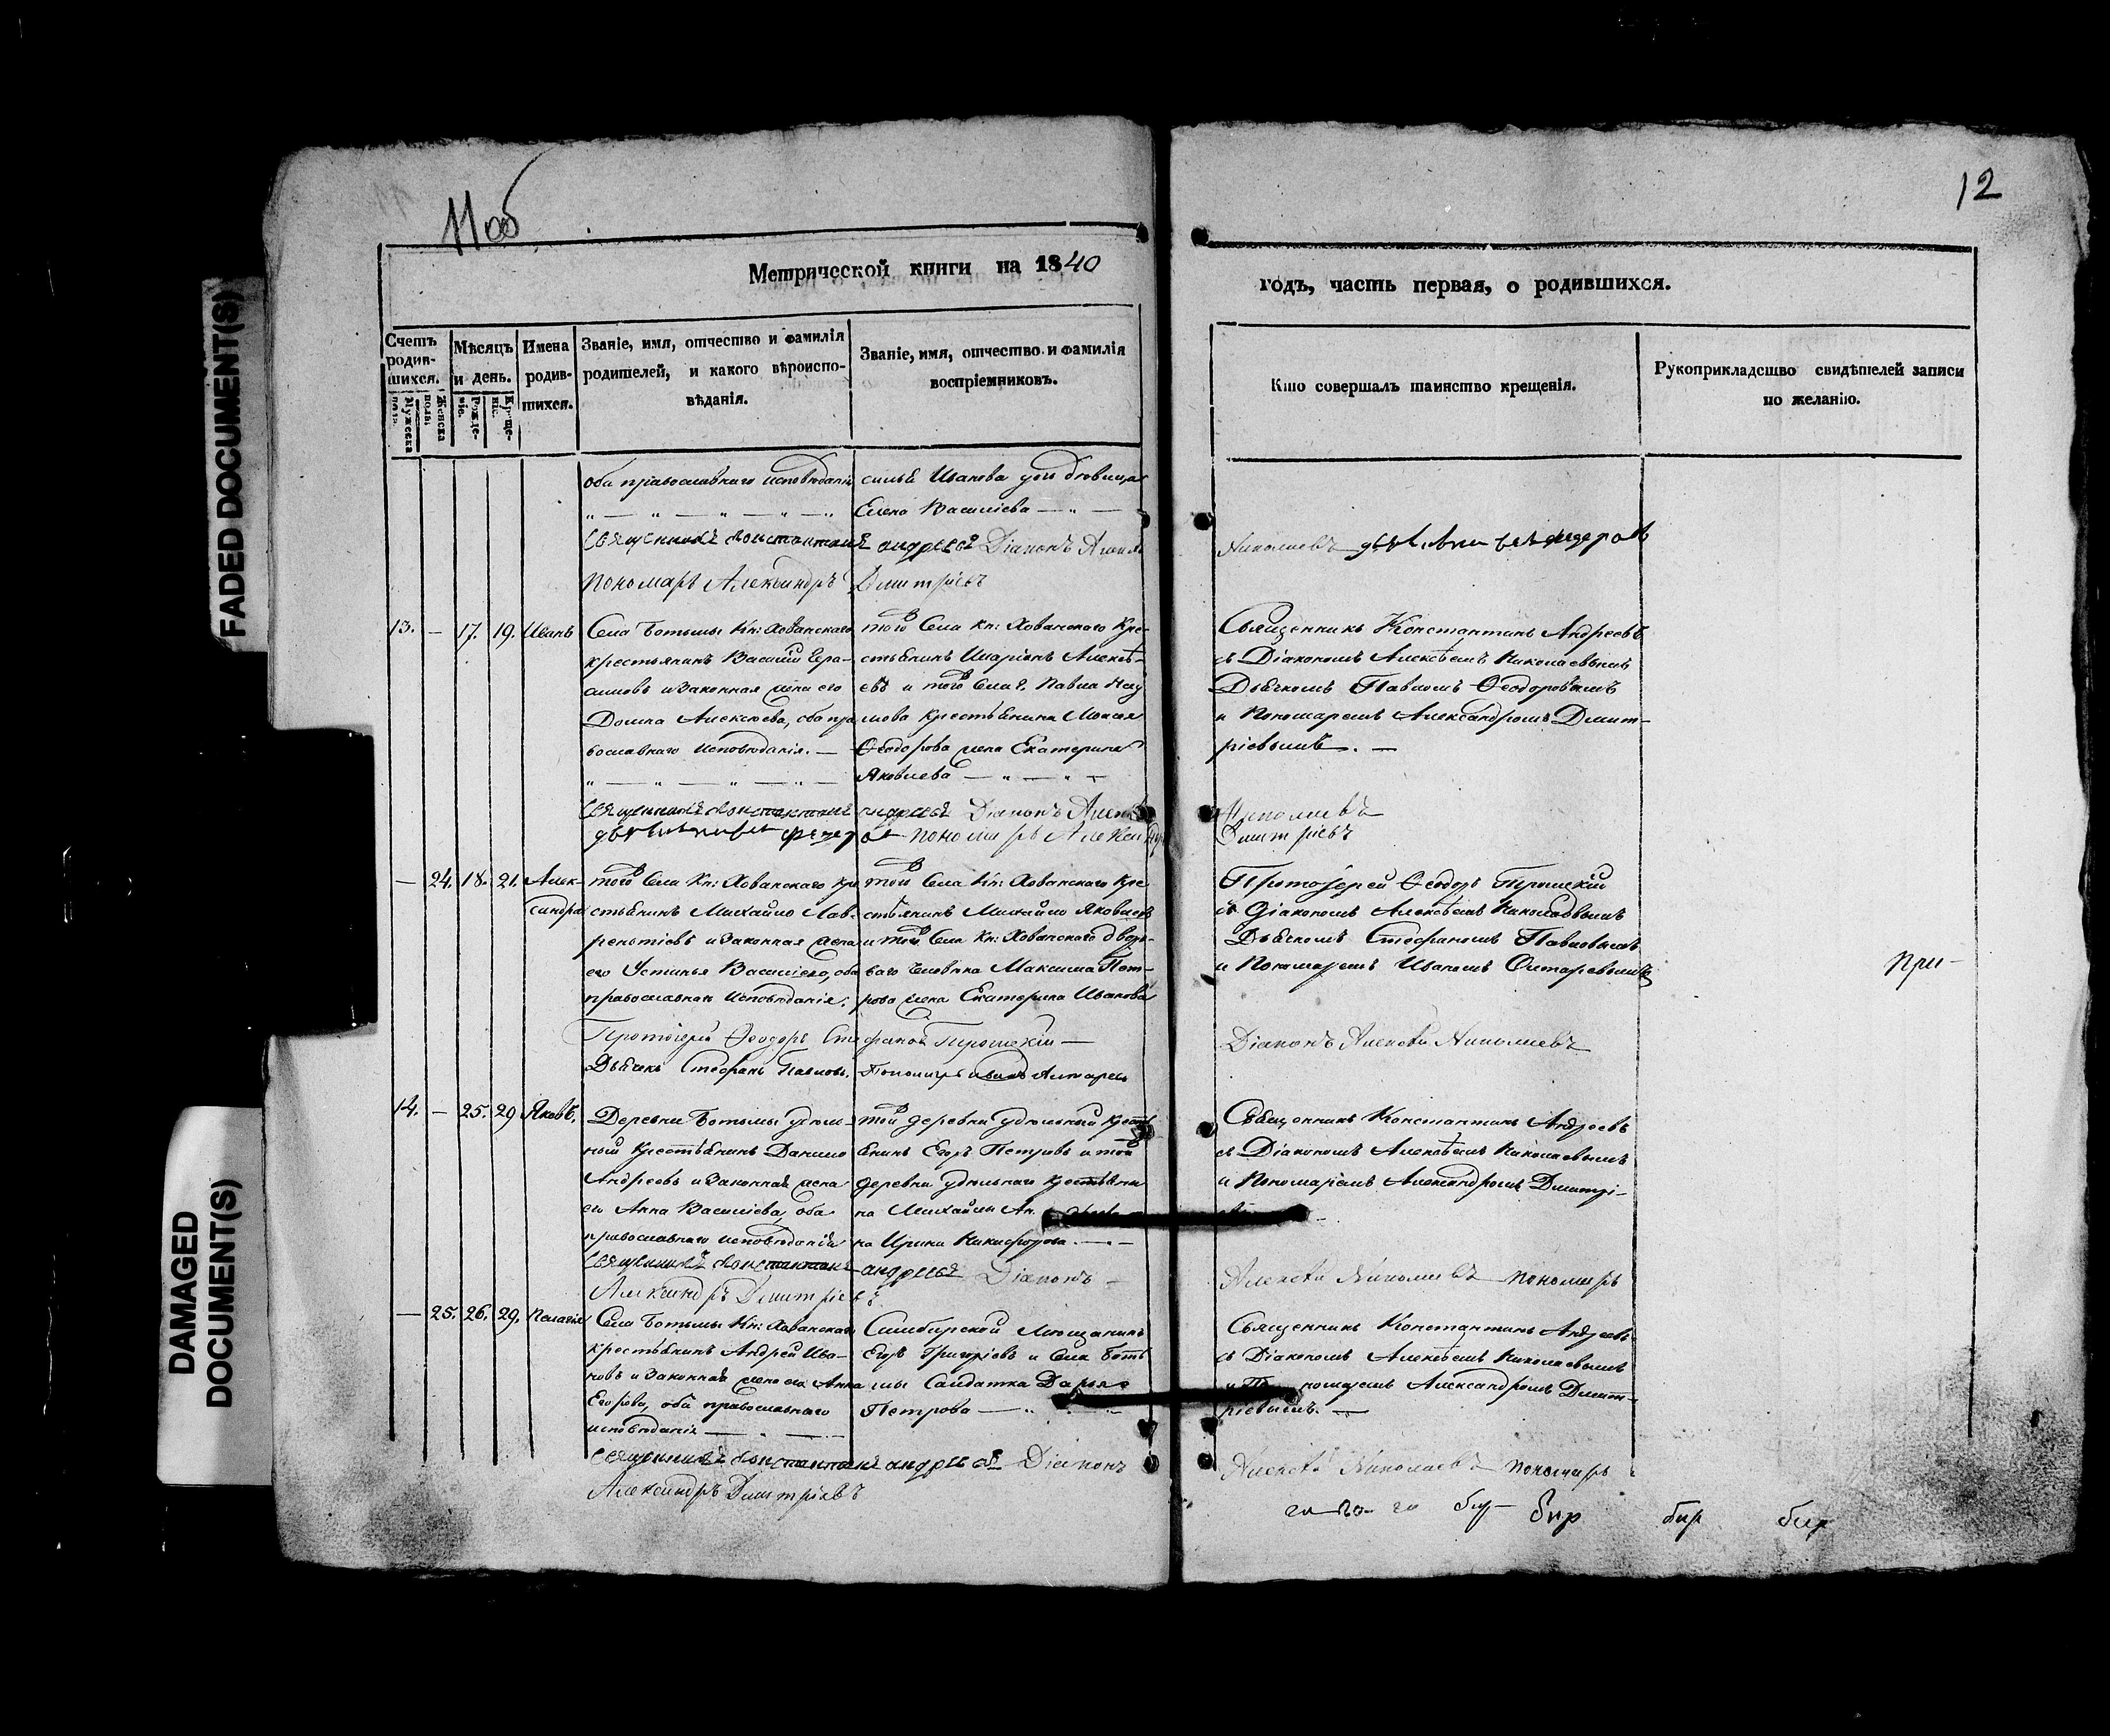 11 об
12
Метрической книги на 1840
годъ, часть первая, о родившихся.
Счетъ родившихся.
Мужеска полъ.
Женска полъ.
Мѣсяцъ и день.
Рожденіе.
Крещеніе.
Имена родившихся.
Званіе, имя, отчество и фамилія
родителей, и какого вѣроиспо-
вѣданія.
Званіе, имя, отчество и фамилія
воспріемниковъ.
Кто совершалъ таинство крещенія.
Рукоприкладство свидѣтелей записи
по желанію.
оба православнаго исповѣданія
Иванова дочь дѣвица
Елена Василіева
Священникъ Константинъ Андреевъ Діаконъ
Николаевъ
Пономарь Александръ Дмитріевъ
13. — 17. 19. Иванъ
Села Ботьмы Кн: Хованскаго
крестьянинъ Василій Гера-
симовъ и законная жена его
Домна Алексѣева, оба пра
вославнаго исповѣданія. —
того Села Кн: Хованскаго Кре-
стьянинъ Иларіонъ Алексѣ-
евъ и того Села Г. Павла Нау
мова крестьянина Моисея
Ѳеодорова жена Екатерина
Яковлева
Священникъ Константинъ Андреевъ
съ Діакономъ Алексѣемъ Николаевымъ
Дьячкомъ Павломъ Ѳеодоровымъ
и Пономаремъ Александромъ Дмит-
ріевымъ. —
Священникъ Константинъ Андреевъ Діаконъ Алексѣй
Николаевъ
пономарь Александръ
Дмитріевъ
— 24. 18. 21. Алек-
сандра
того Села Кн: Хованскаго Кре
стьянинъ Михайло Лав-
рентіевъ и законная жена
его Устинья Василіева, оба
православнаго исповѣданія.
того Села Кн: Хованскаго Кре
стьянинъ Михайло Яковлевъ
и того Села Кн: Хованскаго дворо-
ваго человѣка Максима Пет-
рова жена Екатерина Иванова
Протоіерей Ѳеодоръ Троицкій
съ Діакономъ Алексѣемъ Николаевымъ
Дьячкомъ Стефаномъ Павловымъ
и Пономаремъ Иваномъ
При-
Протоіерей Ѳеодоръ Стефановъ Троицкій —
Діаконъ Алексѣй Николаевъ
Дьячекъ Стефанъ Павловъ. Пономарь Иванъ
14. — 25. 29 Яковъ.
Деревни Ботьмы удѣль-
ный Крестьянинъ Данило
Андреевъ и законная жена
его Анна Василіева, оба
православнаго исповѣданія
той деревни удѣльный Кресть
янинъ Егоръ Петровъ и той
деревни удѣльнаго крестьяни
на Михайлы
на Ирина Никифорова
Священникъ Константинъ Андреевъ
съ Діакономъ Алексѣемъ Николаевымъ
и Пономаремъ Александромъ Дмитрі-
Священникъ Константинъ Андреевъ Діаконъ —
Алексѣй Николаевъ пономарь
Александръ Дмитріевъ
— 25. 26. 29. Пелагія
Села Ботьмы Кн: Хованскаго
крестьянинъ Андрей Ива-
новъ и законная жена его Анна
Егорова, оба православнаго
исповѣданія
Симбирской мещанинъ
Егоръ Григоріевъ и Села Боть
мы Солдатка Дарья
Петрова
Священникъ Константинъ Андреевъ
съ Діакономъ Алексѣемъ Николаевымъ
и Пономаремъ Александромъ Дмит-
ріевымъ. —
Священникъ Константинъ Андреевъ Діаконъ
Алексѣй Николаевъ пономарь
Александръ Дмитріевъ
бир бир
FADED DOCUMENT(S)
DAMAGED
DOCUMENT(S)